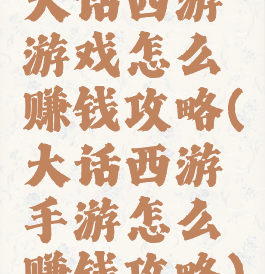 大话西游
游戏怎么
赚钱攻略(
大话西游
手游怎么
赚钱攻略)